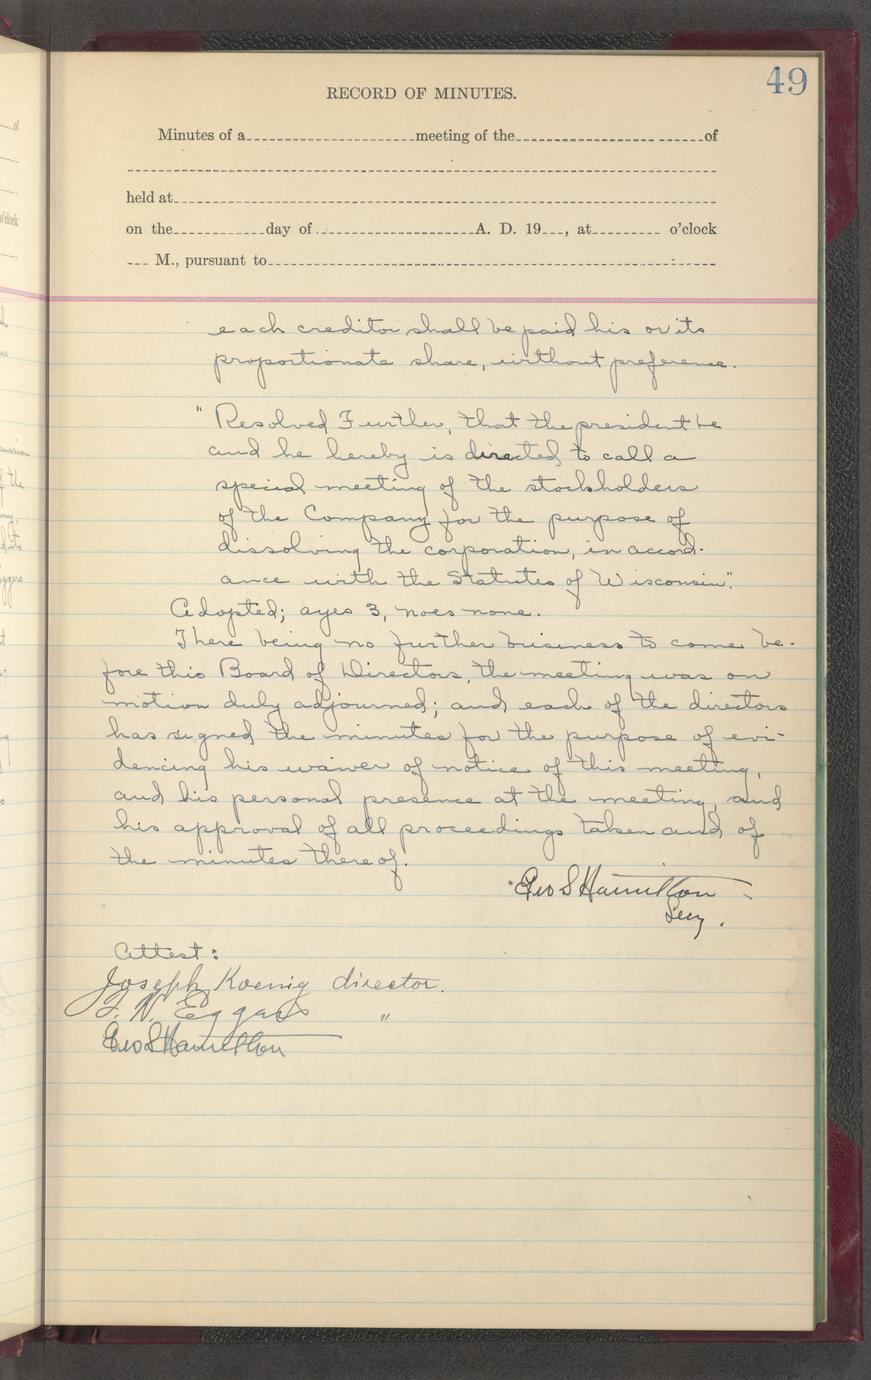 49
RECORD OF MINUTES.
Minutes of a meeting of the of
held at
on the day of A. D. 19 , at o'clock
M., pursuant to
each creditor shall be paid his or its
proportionate share, without preference.
" Resolved Further, that the president be
and he hereby is directed to call a
special meeting of the stockholders
of the Company for the purpose of
dissolving the corporation, in accord-
ance with the Statutes of Wisconsin".
Adopted; ayes 3, noes none.
There being no further business to come be-
fore this Board of Directors, the meeting was on
motion duly adjourned; and each of the directors
has signed the minutes for the purpose of evi-
dencing his waiver of notice of this meeting,
and his personal presence at the meeting, and
his approval of all proceedings taken and of
the minutes thereof.
Geo S Hamilton
Secy.
Attest:
Joseph Koenig director.
F. N. Eggers "
Geo S Hamilton